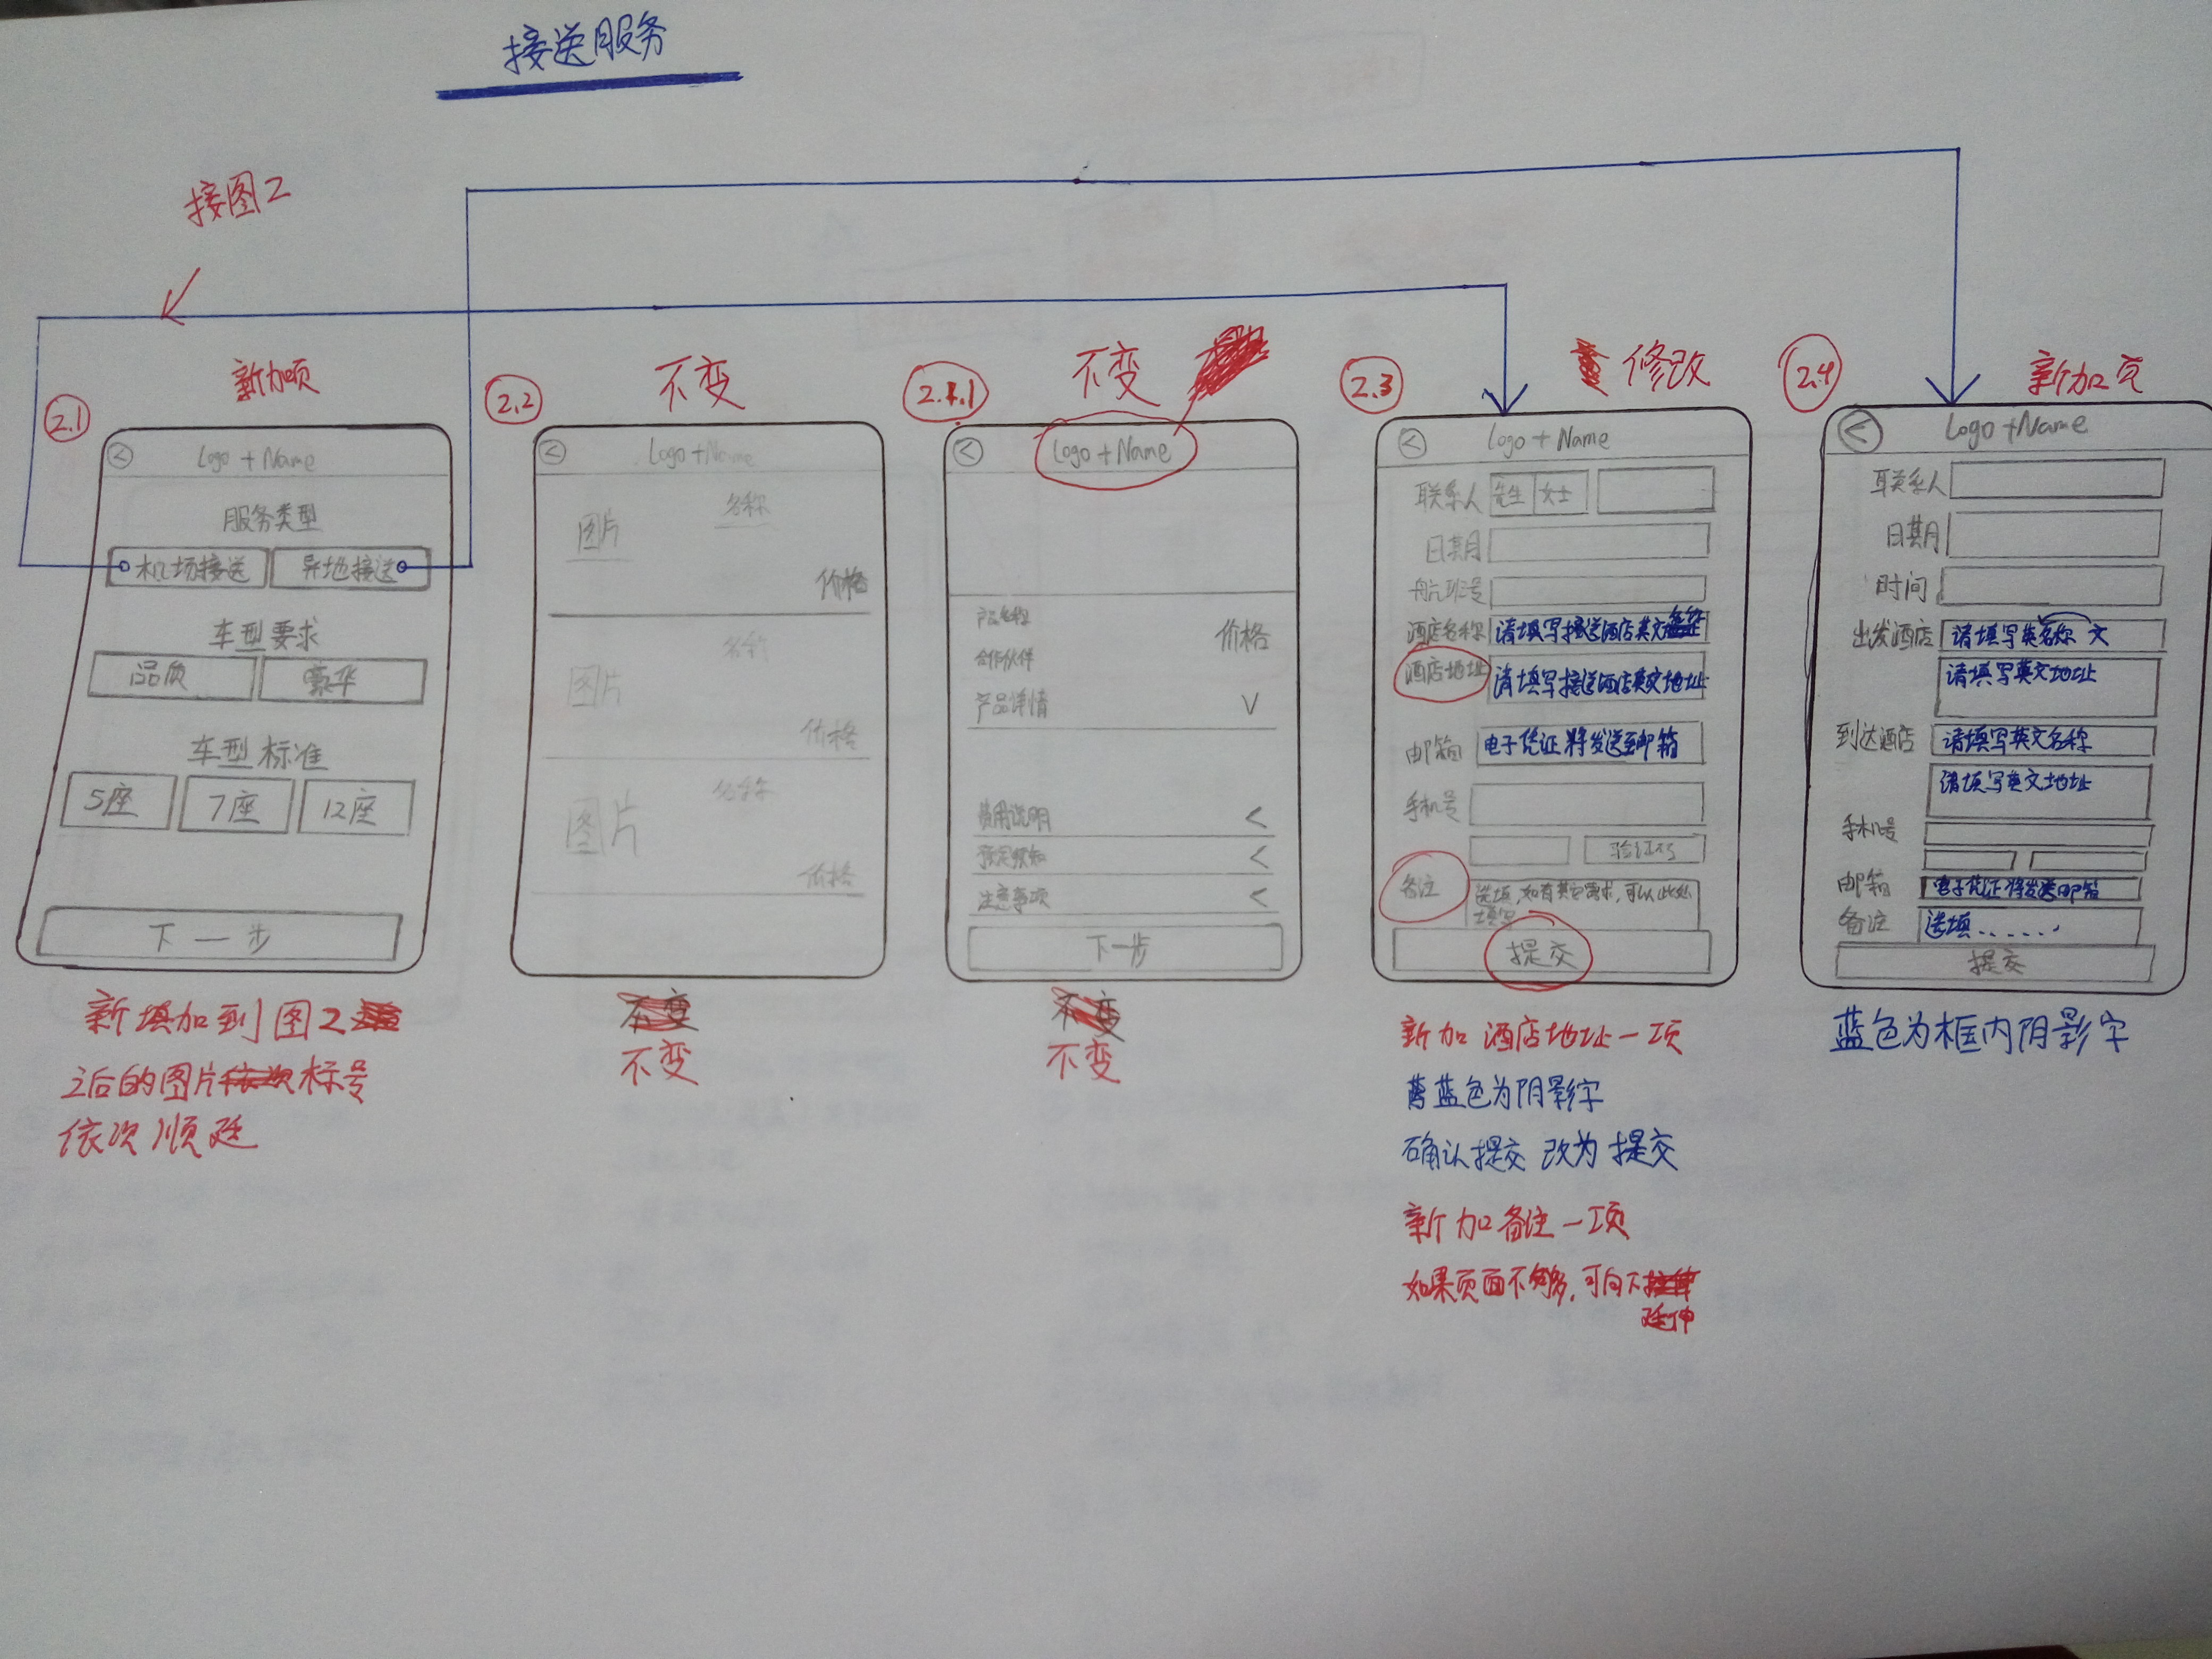 接送服务
接图2
新加页
2.1
Logo + Name
服务类型
机场接送 异地接送
车型要求
品质 豪华
车型标准
5座 7座 12座
下一步
新填加到图2
2后的图片标号
依次顺延
不变
2.2
Logo + Name
图片 名称
价格
图片 名称
价格
图片 名称
价格
不变
不变
2.1.1
Logo + Name
产品名称
价格
合作伙伴
产品详情 ∨
费用说明 <
预定须知 <
注意事项 <
下一步
不变
修改
2.3
Logo + Name
联系人 先生 女士
日期
航班号
酒店名称 请填写接送酒店英文
酒店地址 请填写接送酒店英文地址
邮箱 电子凭证将发送至邮箱
手机号
验证码
备注 选填,如有其它需求,可以此处
填写
提交
新加酒店地址一项
蓝色为阴影字
确认提交 改为 提交
新加备注一项
如果页面不够,可向下
延伸
新加页
2.4
Logo + Name
联系人
日期
时间
出发酒店 请填写英名称 文
请填写英文地址
到达酒店 请填写英文名称
请填写英文地址
手机号
邮箱 电子凭证将发送邮箱
备注 选填......
提交
蓝色为框内阴影字